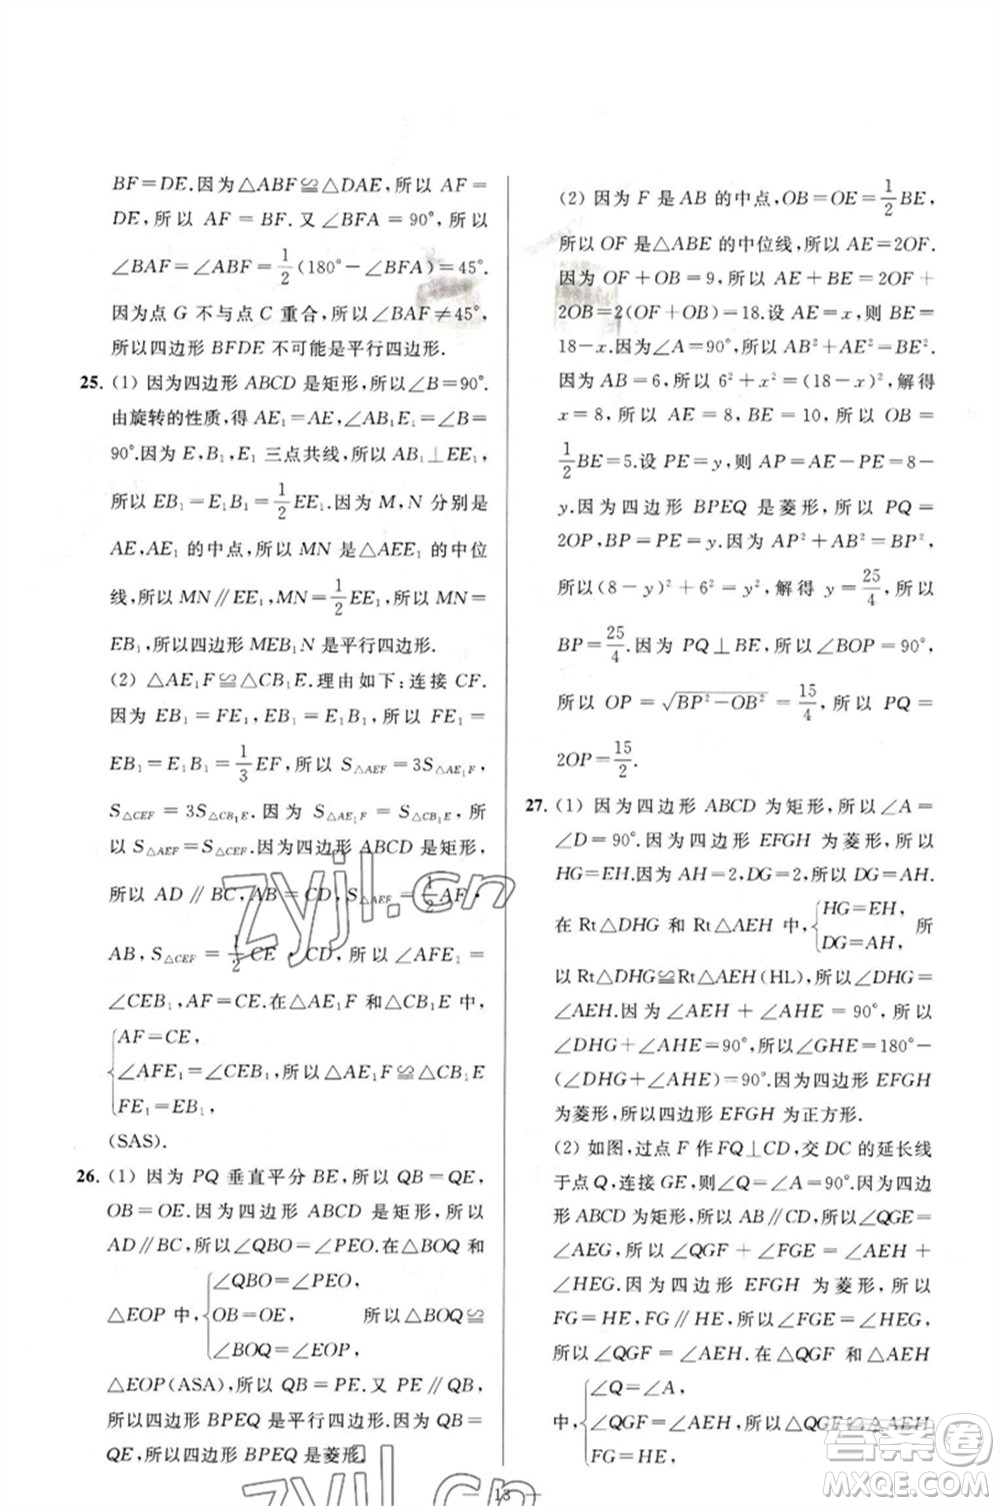 BF=DE.因为△ABF≌△DAE,所以 AF=
DE,所以 AF=BF.又∠BFA=90°,所以
∠BAF=∠ABF=1/2(180°-∠BFA)=45°.
因为点 G 不与点 C 重合,所以∠BAF≠45°,
所以四边形 BFDE 不可能是平行四边形.
25. (1) 因为四边形 ABCD 是矩形,所以∠B=90°.
由旋转的性质,得 AE₁=AE,∠AB₁E₁=∠B=
90°.因为 E,B₁,E₁ 三点共线,所以 AB₁⊥EE₁,
所以 EB₁=E₁B₁=1/2EE₁.因为 M,N 分别是
AE,AE₁ 的中点,所以 MN 是△AEE₁ 的中位
线,所以 MN∥EE₁,MN=1/2EE₁,所以 MN=
EB₁,所以四边形 MEB₁N 是平行四边形.
(2) △AE₁F≌△CB₁E.理由如下:连接 CF.
因为 EB₁=FE₁,EB₁=E₁B₁,所以 FE₁=
EB₁=E₁B₁=1/3EF,所以 S△AEF=3S△AE₁F,
S△CEF=3S△CB₁E.因为 S△AE₁F=S△CB₁E,所
以 S△AEF=S△CEF.因为四边形 ABCD 是矩形,
所以 AD∥BC,AB=CD,S△AEF=1/2AF·
AB,S△CEF=1/2CE·CD,所以∠AFE₁=
∠CEB₁,AF=CE.在△AE₁F 和△CB₁E 中,
{AF=CE,
∠AFE₁=∠CEB₁,所以△AE₁F≌△CB₁E
FE₁=EB₁,
(SAS).
26. (1) 因为 PQ 垂直平分 BE,所以 QB=QE,
OB=OE.因为四边形 ABCD 是矩形,所以
AD∥BC,所以∠QBO=∠PEO.在△BOQ 和
{∠QBO=∠PEO,
△EOP 中,OB=OE, 所以△BOQ≌
∠BOQ=∠EOP,
△EOP(ASA),所以 QB=PE.又 AD∥BC,
所以四边形 BPEQ 是平行四边形.因为 QB=
QE,所以四边形 BPEQ 是菱形.
(2) 因为 F 是 AB 的中点,OB=OE=1/2BE,
所以 OF 是△ABE 的中位线,所以 AE=2OF.
因为 OF+OB=9,所以 AE+BE=2OF+
2OB=2(OF+OB)=18.设 AE=x,则 BE=
18-x.因为∠A=90°,所以 AB²+AE²=BE².
因为 AB=6,所以 6²+x²=(18-x)²,解得
x=8,所以 AE=8,BE=10,所以 OB=
1/2BE=5.设 PE=y,则 AP=AE-PE=8-
y.因为四边形 BPEQ 是菱形,所以 PQ=
2OP,BP=PE=y.因为 AP²+AB²=BP²,
所以(8-y)²+6²=y²,解得 y=25/4,所以
BP=25/4.因为 PQ⊥BE,所以∠BOP=90°,
所以 OP=√(BP²-OB²)=15/4,所以 PQ=
2OP=15/2.
27. (1) 因为四边形 ABCD 为矩形,所以∠A=
∠D=90°.因为四边形 EFGH 为菱形,所以
HG=EH.因为 AH=2,DG=2,所以 DG=AH.
在 Rt△DHG 和 Rt△AEH 中,{HG=EH, DG=AH, 所
以 Rt△DHG≌Rt△AEH(HL),所以∠DHG=
∠AEH.因为∠AEH+∠AHE=90°,所以
∠DHG+∠AHE=90°,所以∠GHE=180°-
(∠DHG+∠AHE)=90°.因为四边形 EFGH
为菱形,所以四边形 EFGH 为正方形.
(2) 如图,过点 F 作 FQ⊥CD,交 DC 的延长线
于点 Q,连接 GE,则∠Q=∠A=90°.因为四边
形 ABCD 为矩形,所以 AB∥CD,所以∠QGE=
∠AEG,所以∠QGF+∠FGE=∠AEH+
∠HEG.因为四边形 EFGH 为菱形,所以
FG=HE,FG∥HE,所以∠FGE=∠HEG,
所以∠QGF=∠AEH.在△QGF 和△AEH
{∠Q=∠A,
中,∠QGF=∠AEH,所以△QGF≌△AEH
FG=HE,
13
zyjl.cn
zyjl.cn
答案圈
MXQE.COM